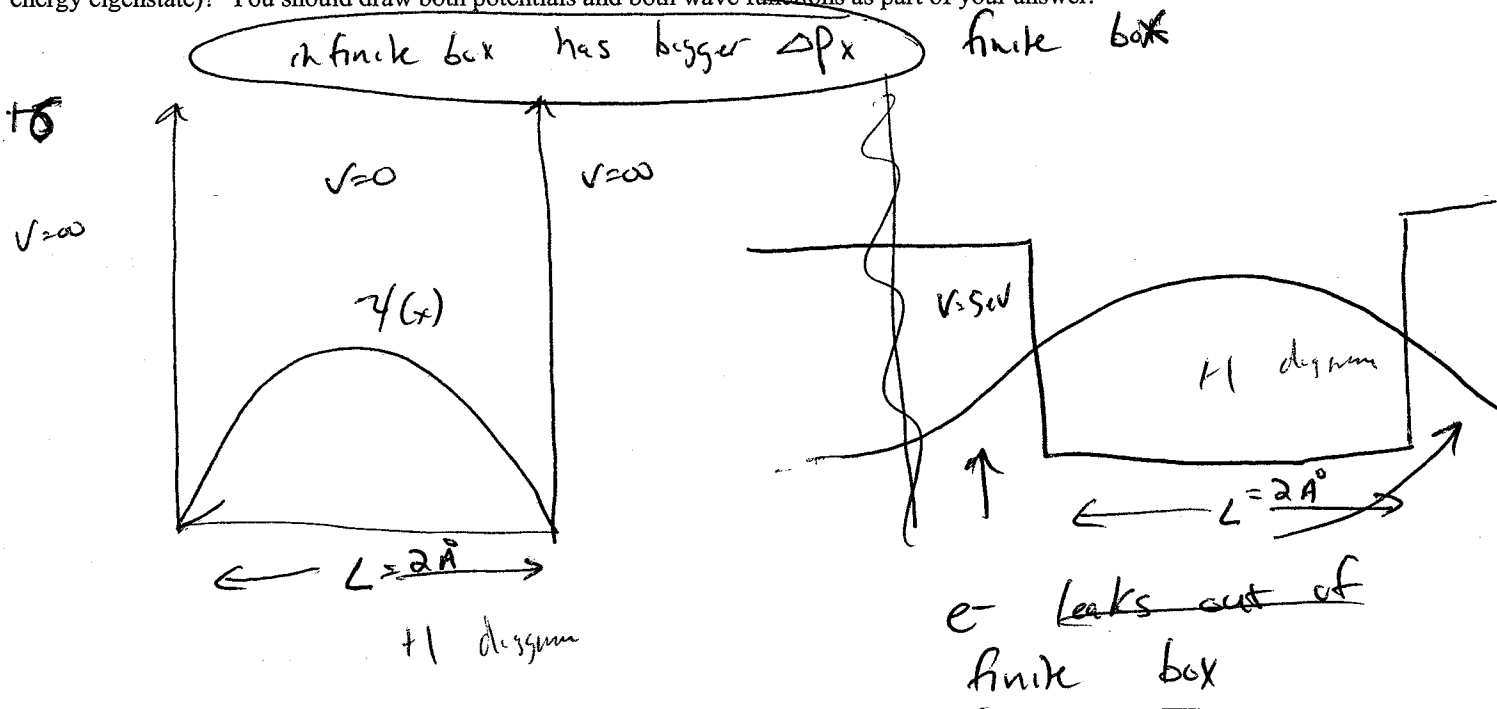 energy eigenstate)? You should draw both potentials and both wave functions as part of your answer.
infinite box has bigger ΔPx
finite box
+6
V=0
V=∞
V=∞
ψ(x)
V=5eV
+1 diagram
L=2Å
+1 diagram
L=2Å
e- leaks out of
finite box